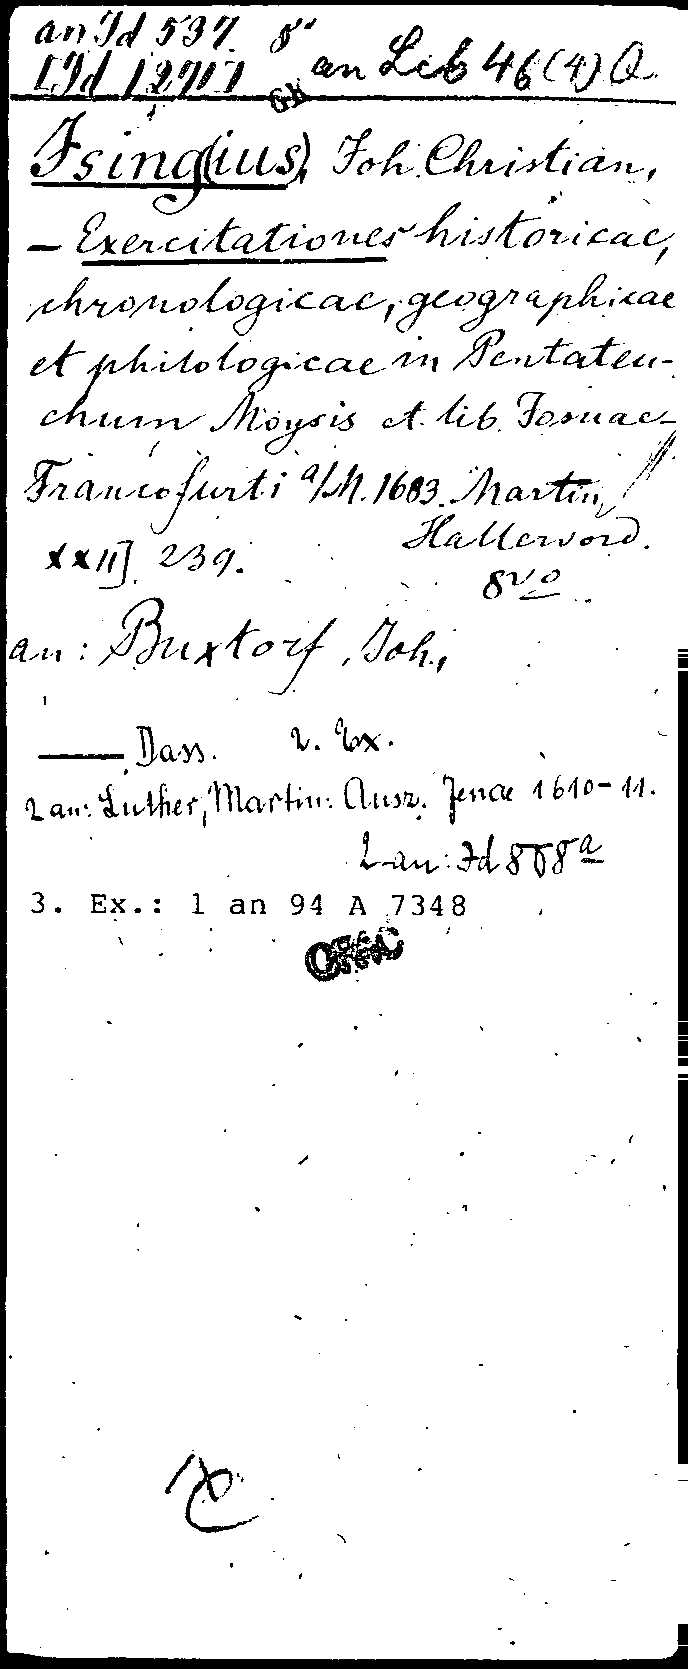 an Id 537. 8°
an Lcb 46 (4) Q
Ising(ius), Joh. Christian,
– Exercitationes historicae,
chronologicae, geographicae
et philologicae in Pentateu-
chum Moysis et lib. Josuae-
Francofurti a/M. 1683. Martin
Hallervord.
XXII]. 239.
8vo
an: Buxtorf, Joh.,
—— Dass. 2. Ex.
2 an: Luther, Martin: Ausz. Jenae 1610-11.
2 an: Id 808a
3. Ex.: 1 an 94 A 7348
OPAC